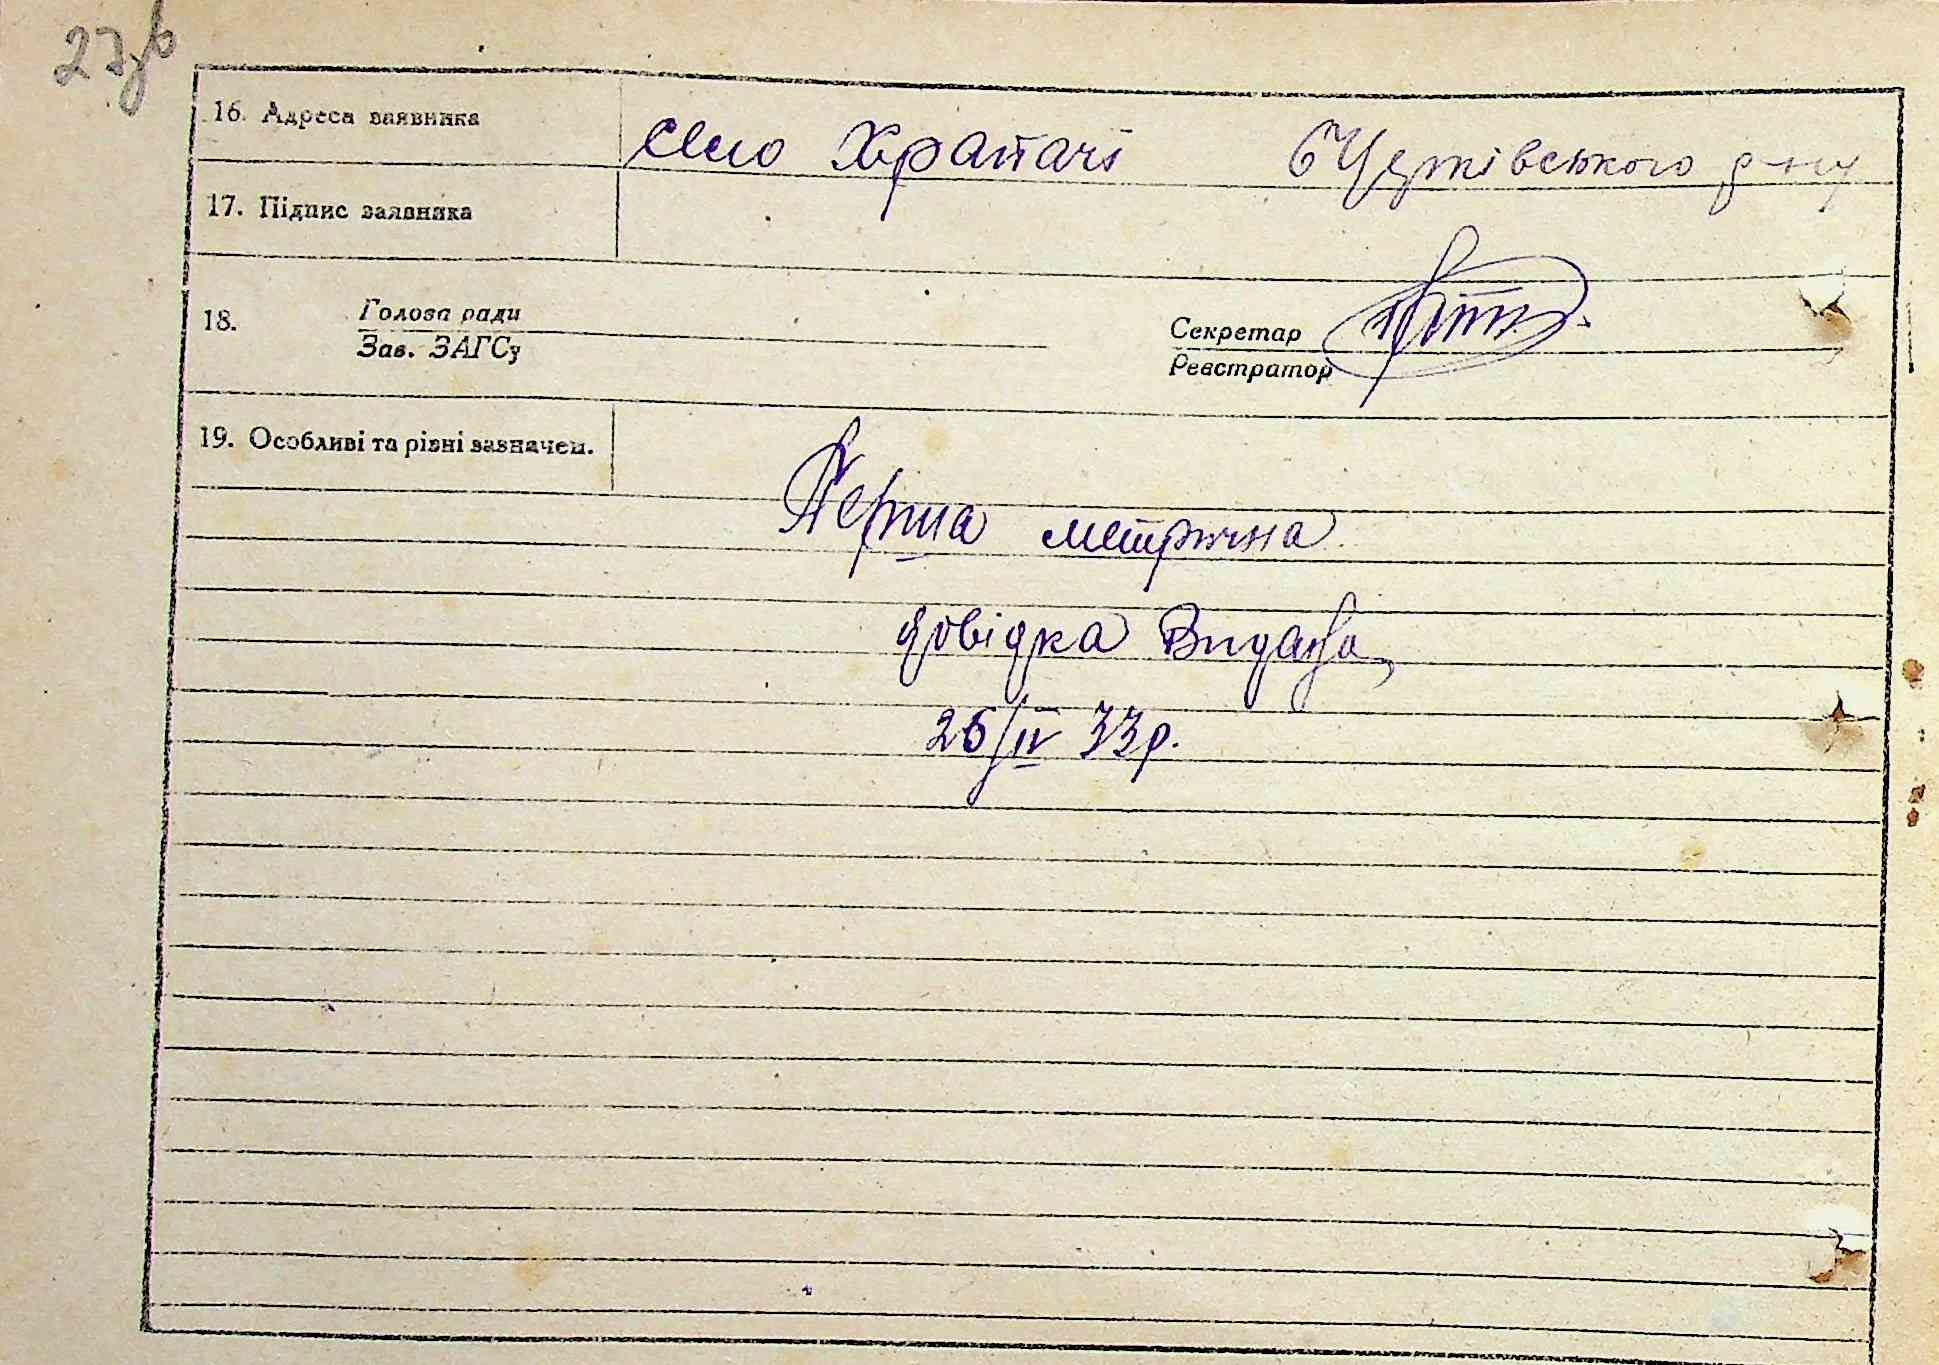 27зв
16. Адреса заявника село Храпачі БЦерківського р-ну
17. Підпис заявника
18. Голова ради
Зав. ЗАГСу
Секретар
Реєстратор
19. Особливі та різні зазначен.
Перша метрична
довідка Видана
26/IV 33р.